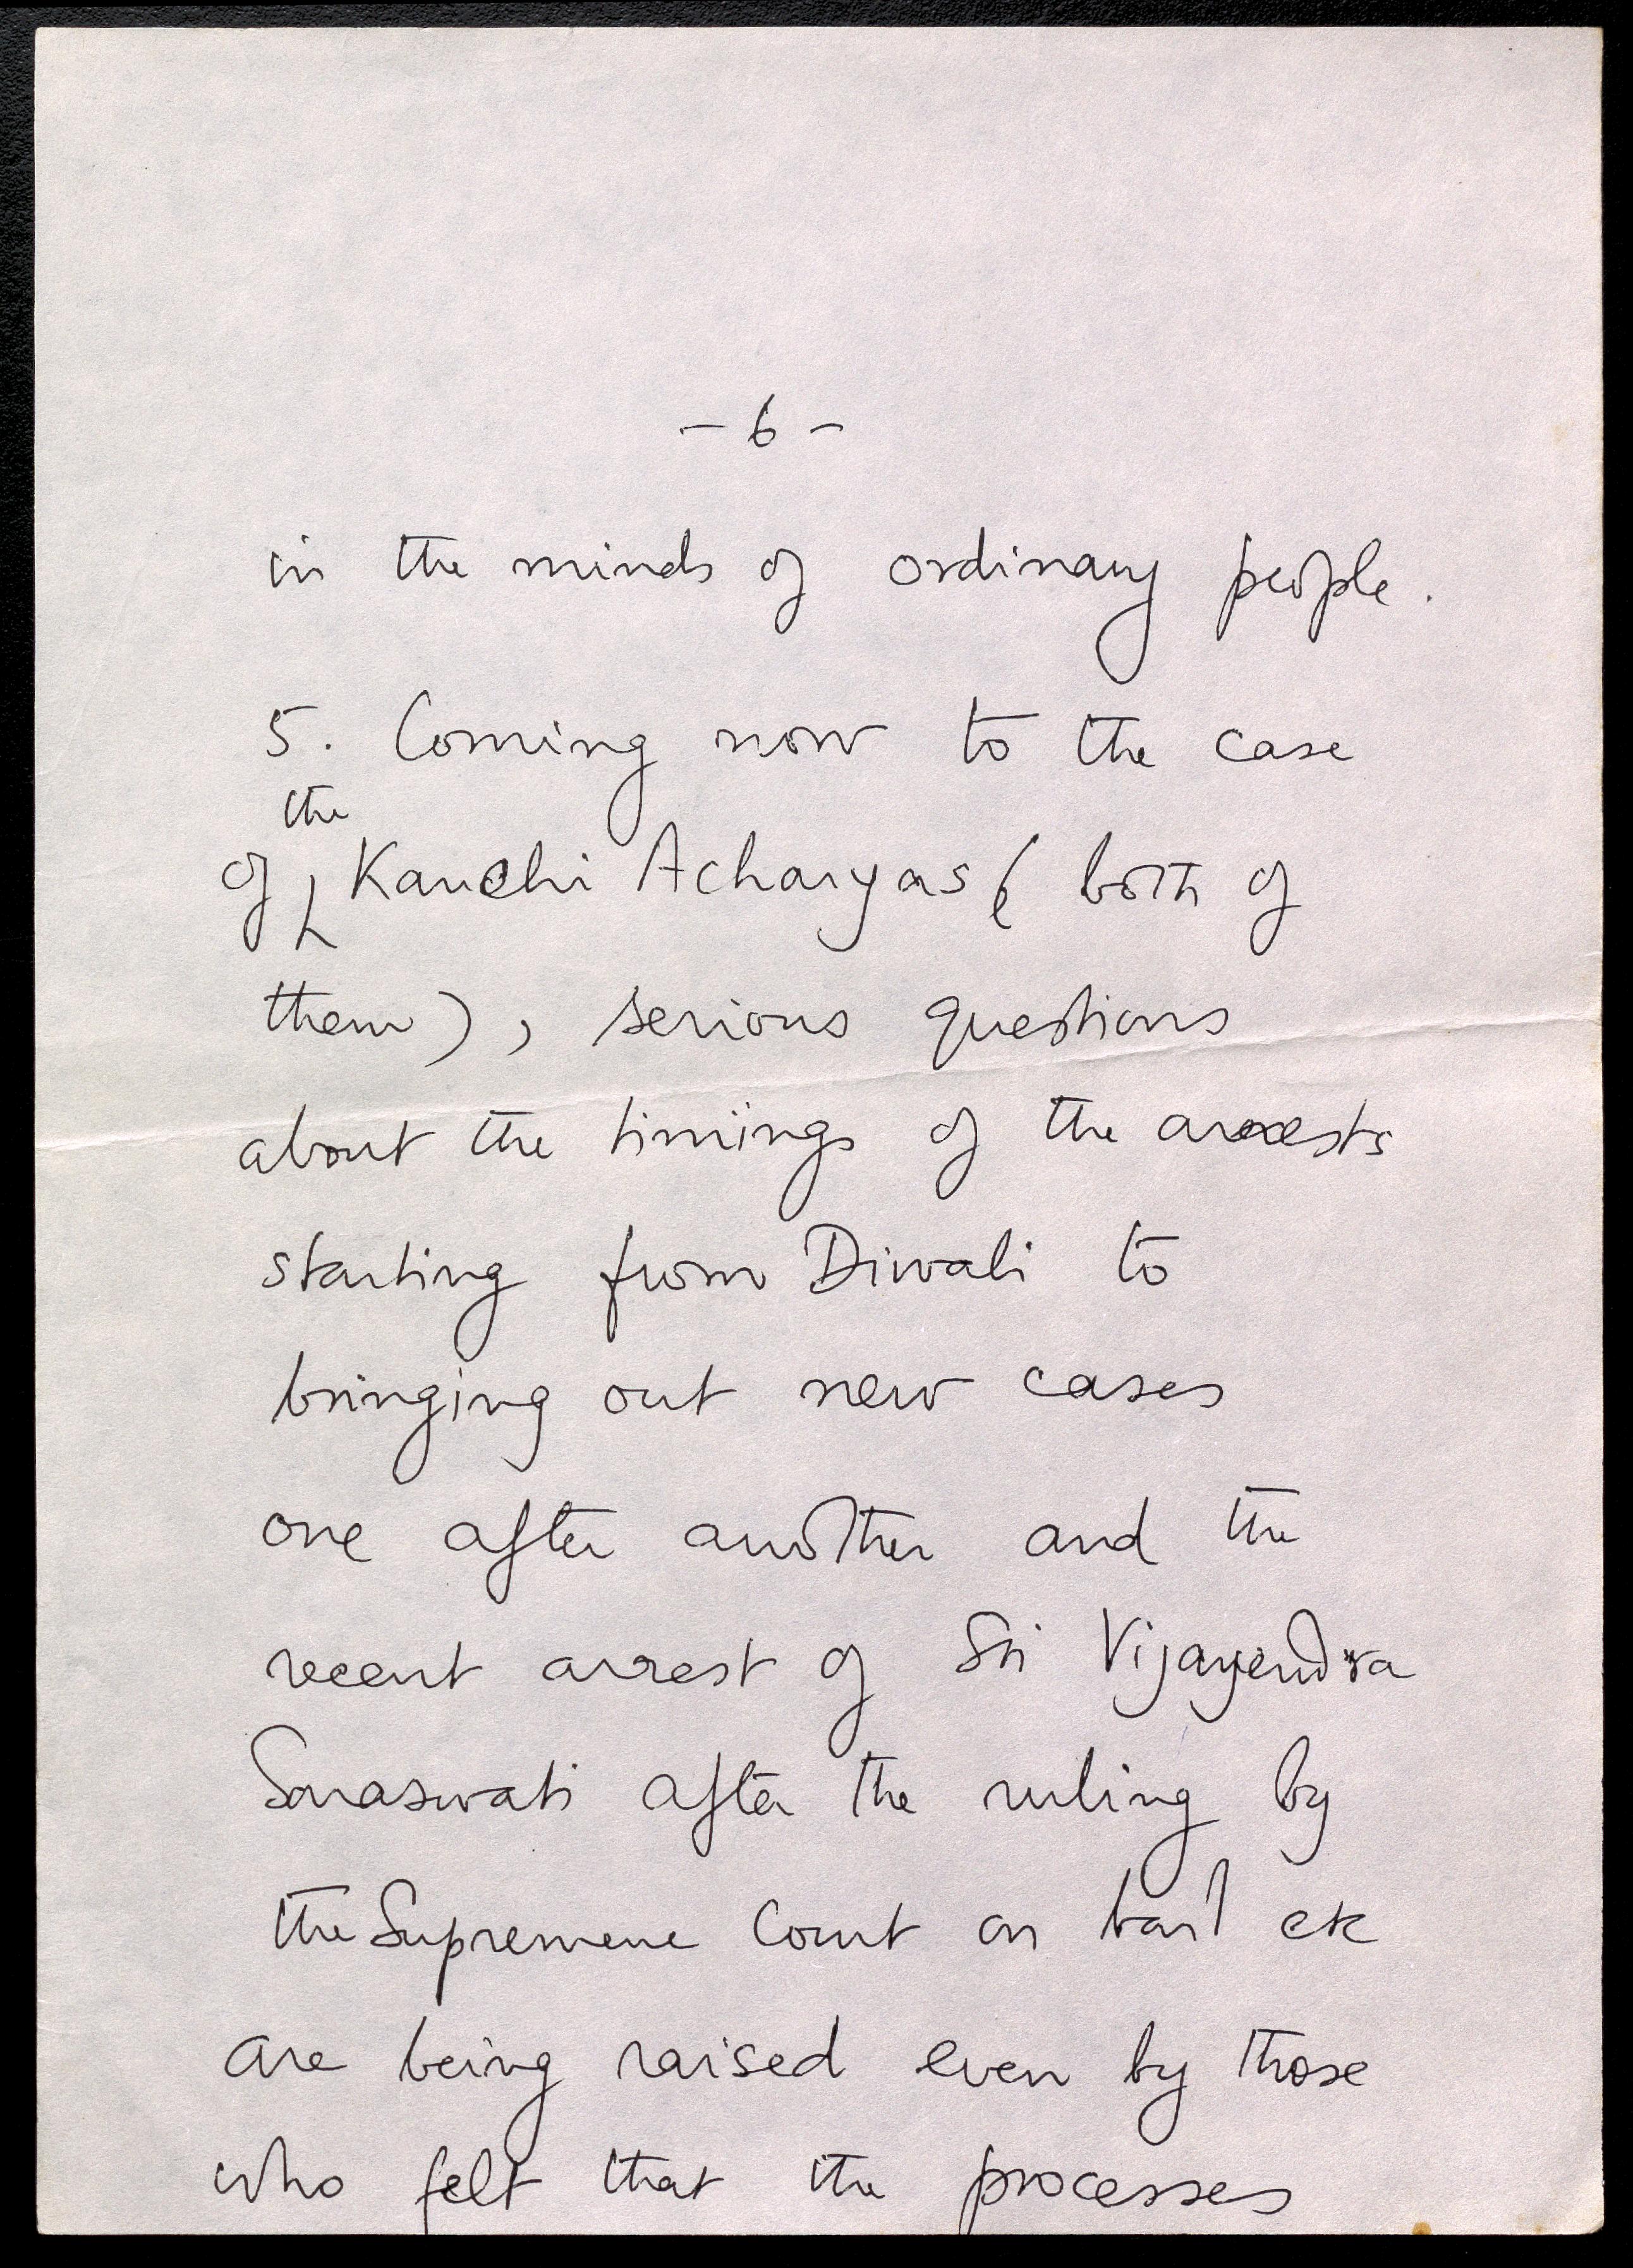 - 6 -
in the minds of ordinary people.
5. Coming now to the case
the
of Kanchi Acharyas ( both of
them), serious questions
about the timings of the arrests
starting from Diwali to
bringing out new cases
one after another and the
recent arrest of Sri Vijayendra
Saraswati after the ruling by
the Supremene Court on bail etc
are being raised even by those
who felt that the processes